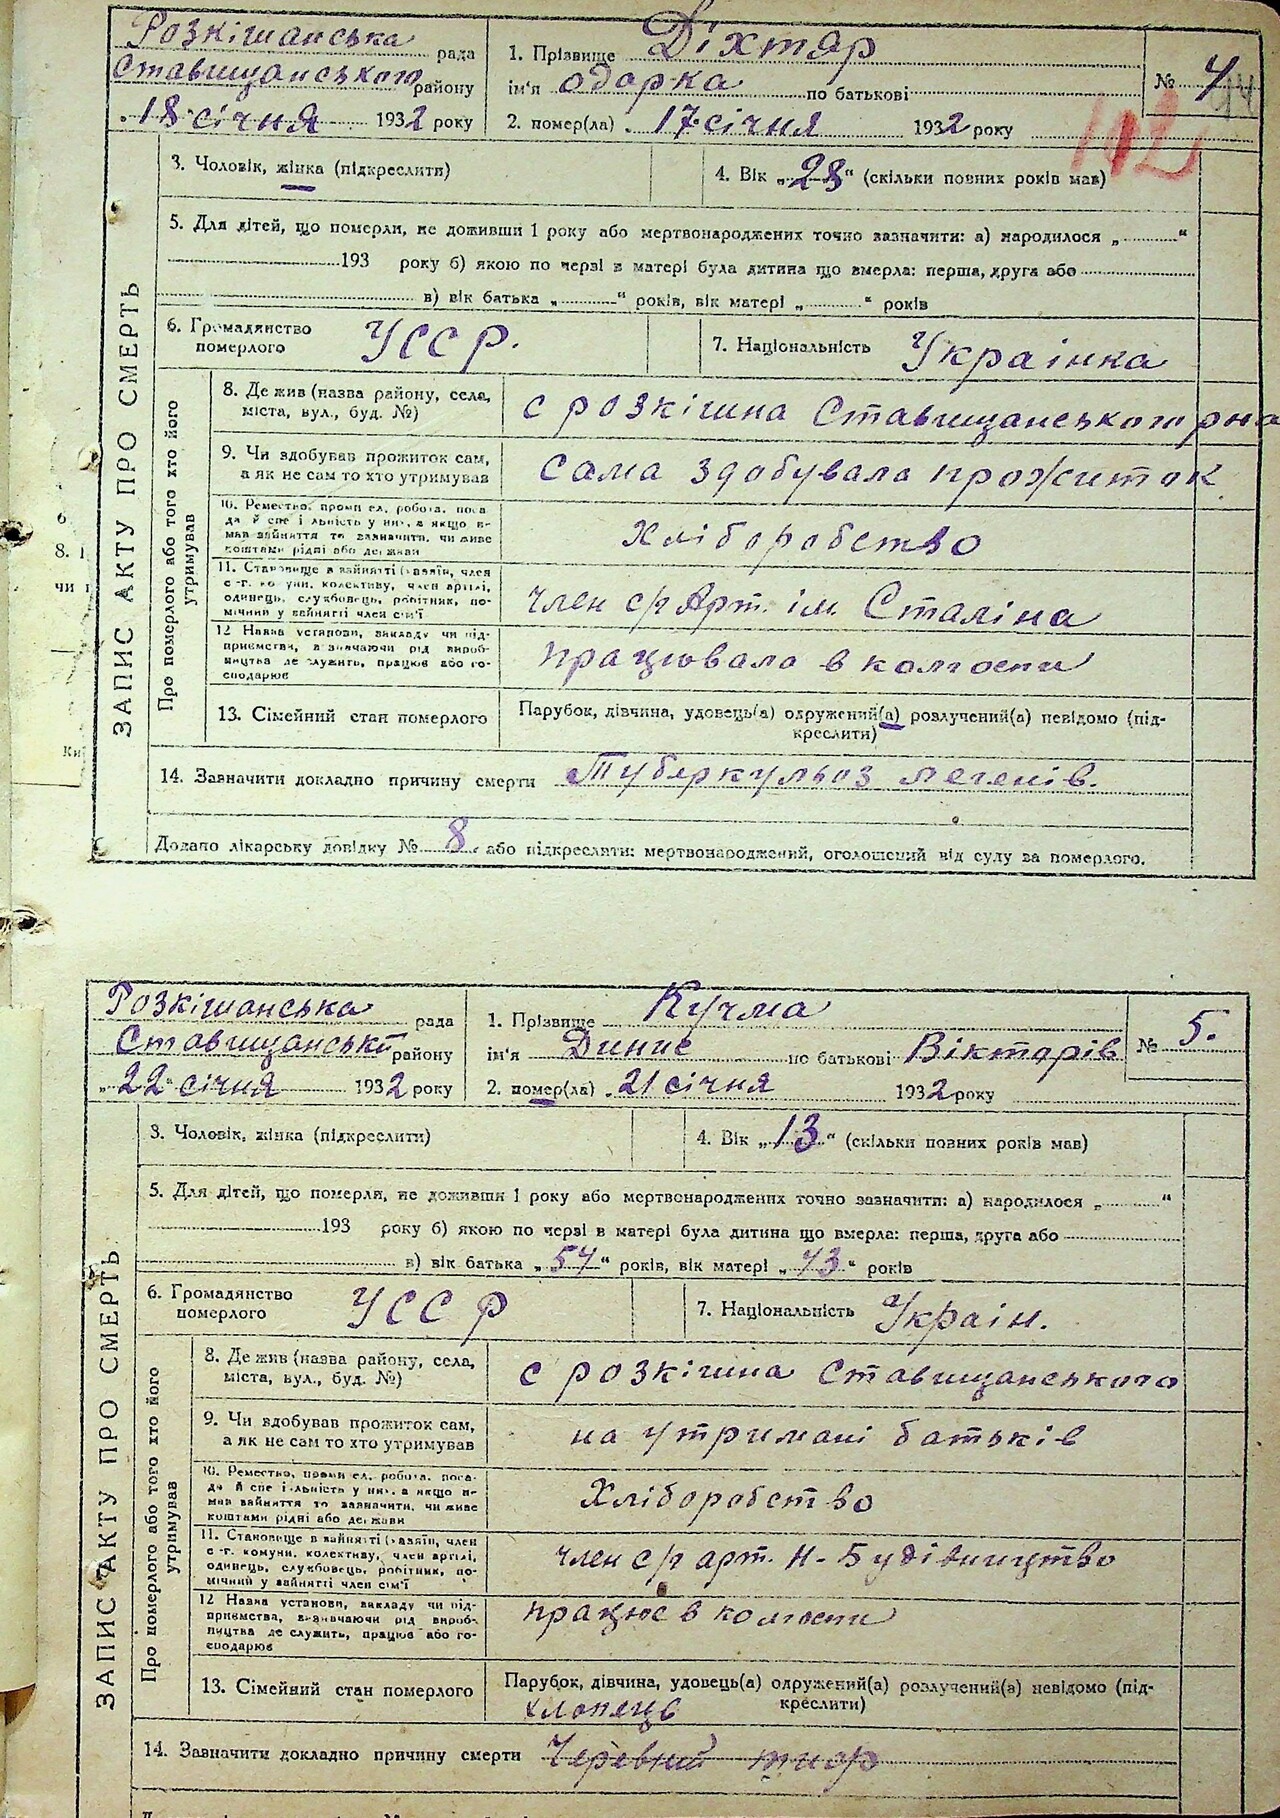 Розкішанська рада
Ставищанського району
„18 січня 1932 року
1. Прізвище Діхтяр
ім'я Одарка по батькові
2. помер(ла) „17 січня 1932 року
№ 4
102
3. Чоловік, жінка (підкреслити)
4. Вік „28“ (скільки повних років мав)
5. Для дітей, що померли, не доживши 1 року або мертвонароджених точно зазначити: а) народилося „ “
193 року б) якою по черзі в матері була дитина що вмерла: перша, друга або
в) вік батька „ “ років, вік матері „ “ років
ЗАПИС АКТУ ПРО СМЕРТЬ
6. Громадянство
померлого
УССР.
7. Національність Українка
Про померлого або того хто його
утримував
8. Де жив (назва району, села,
міста, вул., буд. №)
с Розкішна Ставищанського рна
9. Чи здобував прожиток сам,
а як не сам то хто утримував
сама здобувала прожиток
10. Ремество, промисел, робота, поса-
да й спеціяльність у них, а якщо н-
мав зайняття то зазначити, чи живе
коштами рідні або держави
Хліборобство
11. Становище в зайнятті (хазяїн, член
с-г. комуни, колективу, член артілі,
одинець, службовець, робітник, по-
мічний у зайнятті член сім'ї
член с/г Арт. ім. Сталіна
12 Назва установи, закладу чи під-
приємства, зазначаючи рід вироб-
ництва де служить, працює або го-
сподарює
працювала в колгоспи
13. Сімейний стан померлого
Парубок, дівчина, удовець(а) одружений(а) розлучений(а) невідомо (під-
креслити)
14. Зазначити докладно причину смерти Туберкульоз легенів.
Додано лікарську довідку № 8 або підкреслити: мертвонароджений, оголошений від суду за померлого.
Розкішанська рада
Ставищанський району
„22“ січня 1932 року
1. Прізвище Кучма
ім'я Динис по батькові Вікторів
2. помер(ла) „21 січня 1932 року
№ 5.
3. Чоловік, жінка (підкреслити)
4. Вік „13“ (скільки повних років мав)
5. Для дітей, що померли, не доживши 1 року або мертвонароджених точно зазначити: а) народилося „ “
193 року б) якою по черзі в матері була дитина що вмерла: перша, друга або
в) вік батька „54“ років, вік матері „43“ років
ЗАПИС АКТУ ПРО СМЕРТЬ
6. Громадянство
померлого
УССР
7. Національність Украін.
Про померлого або того хто його
утримував
8. Де жив (назва району, села,
міста, вул., буд. №)
с Розкішна Ставищанського
9. Чи здобував прожиток сам,
а як не сам то хто утримував
на утримані батьків
10. Ремество, промисел, робота, поса-
да й спеціяльність у них, а якщо н-
мав зайняття то зазначити, чи живе
коштами рідні або держави
Хліборобство
11. Становище в зайнятті (хазяїн, член
с-г. комуни, колективу, член артілі,
одинець, службовець, робітник, по-
мічний у зайнятті член сім'ї
член с/г арт. Н-Будівництво
12 Назва установи, закладу чи під-
приємства, зазначаючи рід вироб-
ництва де служить, працює або го-
сподарює
працює в колгоспи
13. Сімейний стан померлого
Парубок, дівчина, удовець(а) одружений(а) розлучений(а) невідомо (під-
креслити)
хлопець
14. Зазначити докладно причину смерти Черевний тиф